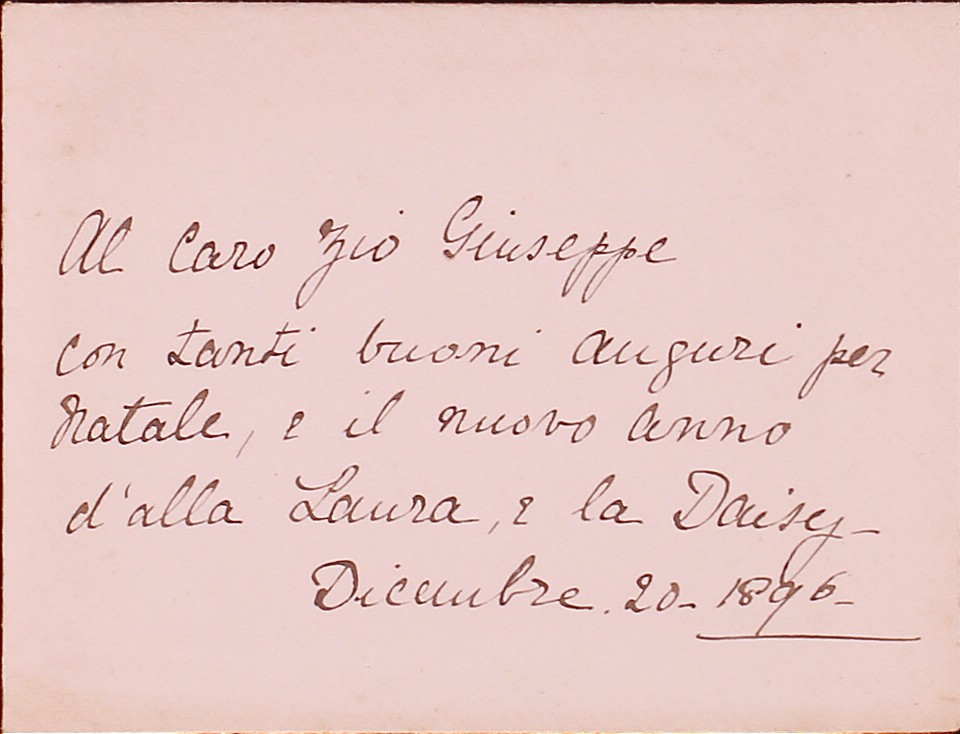 Al Caro Zio Giuseppe
con tanti buoni auguri per
Natale, e il nuovo anno
d'alla Laura, e la Daisy–
Dicembre. 20– 1896–